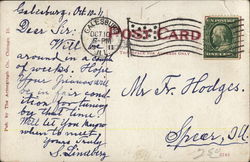 Galesburg, Oct 10-11
Dear Sir:
Will be
around in a couple
of weeks. Hope
your pianos will
be in fair con-
dition for tuning
by that time.
Will let you know
when to meet.
Yours Truly
S. Lindberg
GALESBURG
OCT 10
6-PM
ILL
POST CARD
Mr Fr. Hodges.
Speer, Ill
Pub. by The Acmegraph Co., Chicago, Ill.